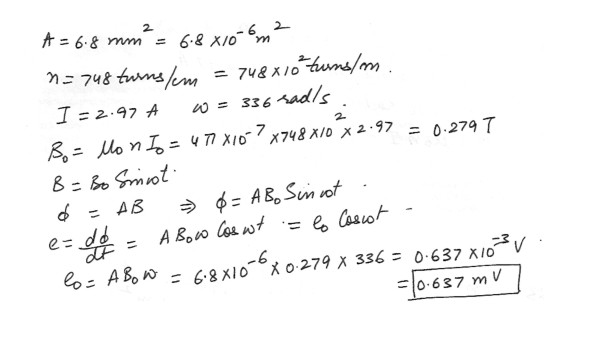 A = 6.8 mm² = 6.8 X10⁻⁶m²
n = 748 turns/cm = 748 X 10² turns/m .
I = 2.97 A   ω = 336 rad/s .
B₀ = μ₀ n I₀ = 4π X10⁻⁷ X748 X10² X 2.97 = 0.279 T
B = B₀ Sin ωt .
ϕ = AB ⇒ ϕ = AB₀ Sin ωt .
e = dϕ/dt = A B₀ω Cos ωt = e₀ Cos ωt -
e₀ = AB₀ ω = 6.8 X10⁻⁶ X 0.279 X 336 = 0.637 X10⁻³ V .
= 0.637 mV